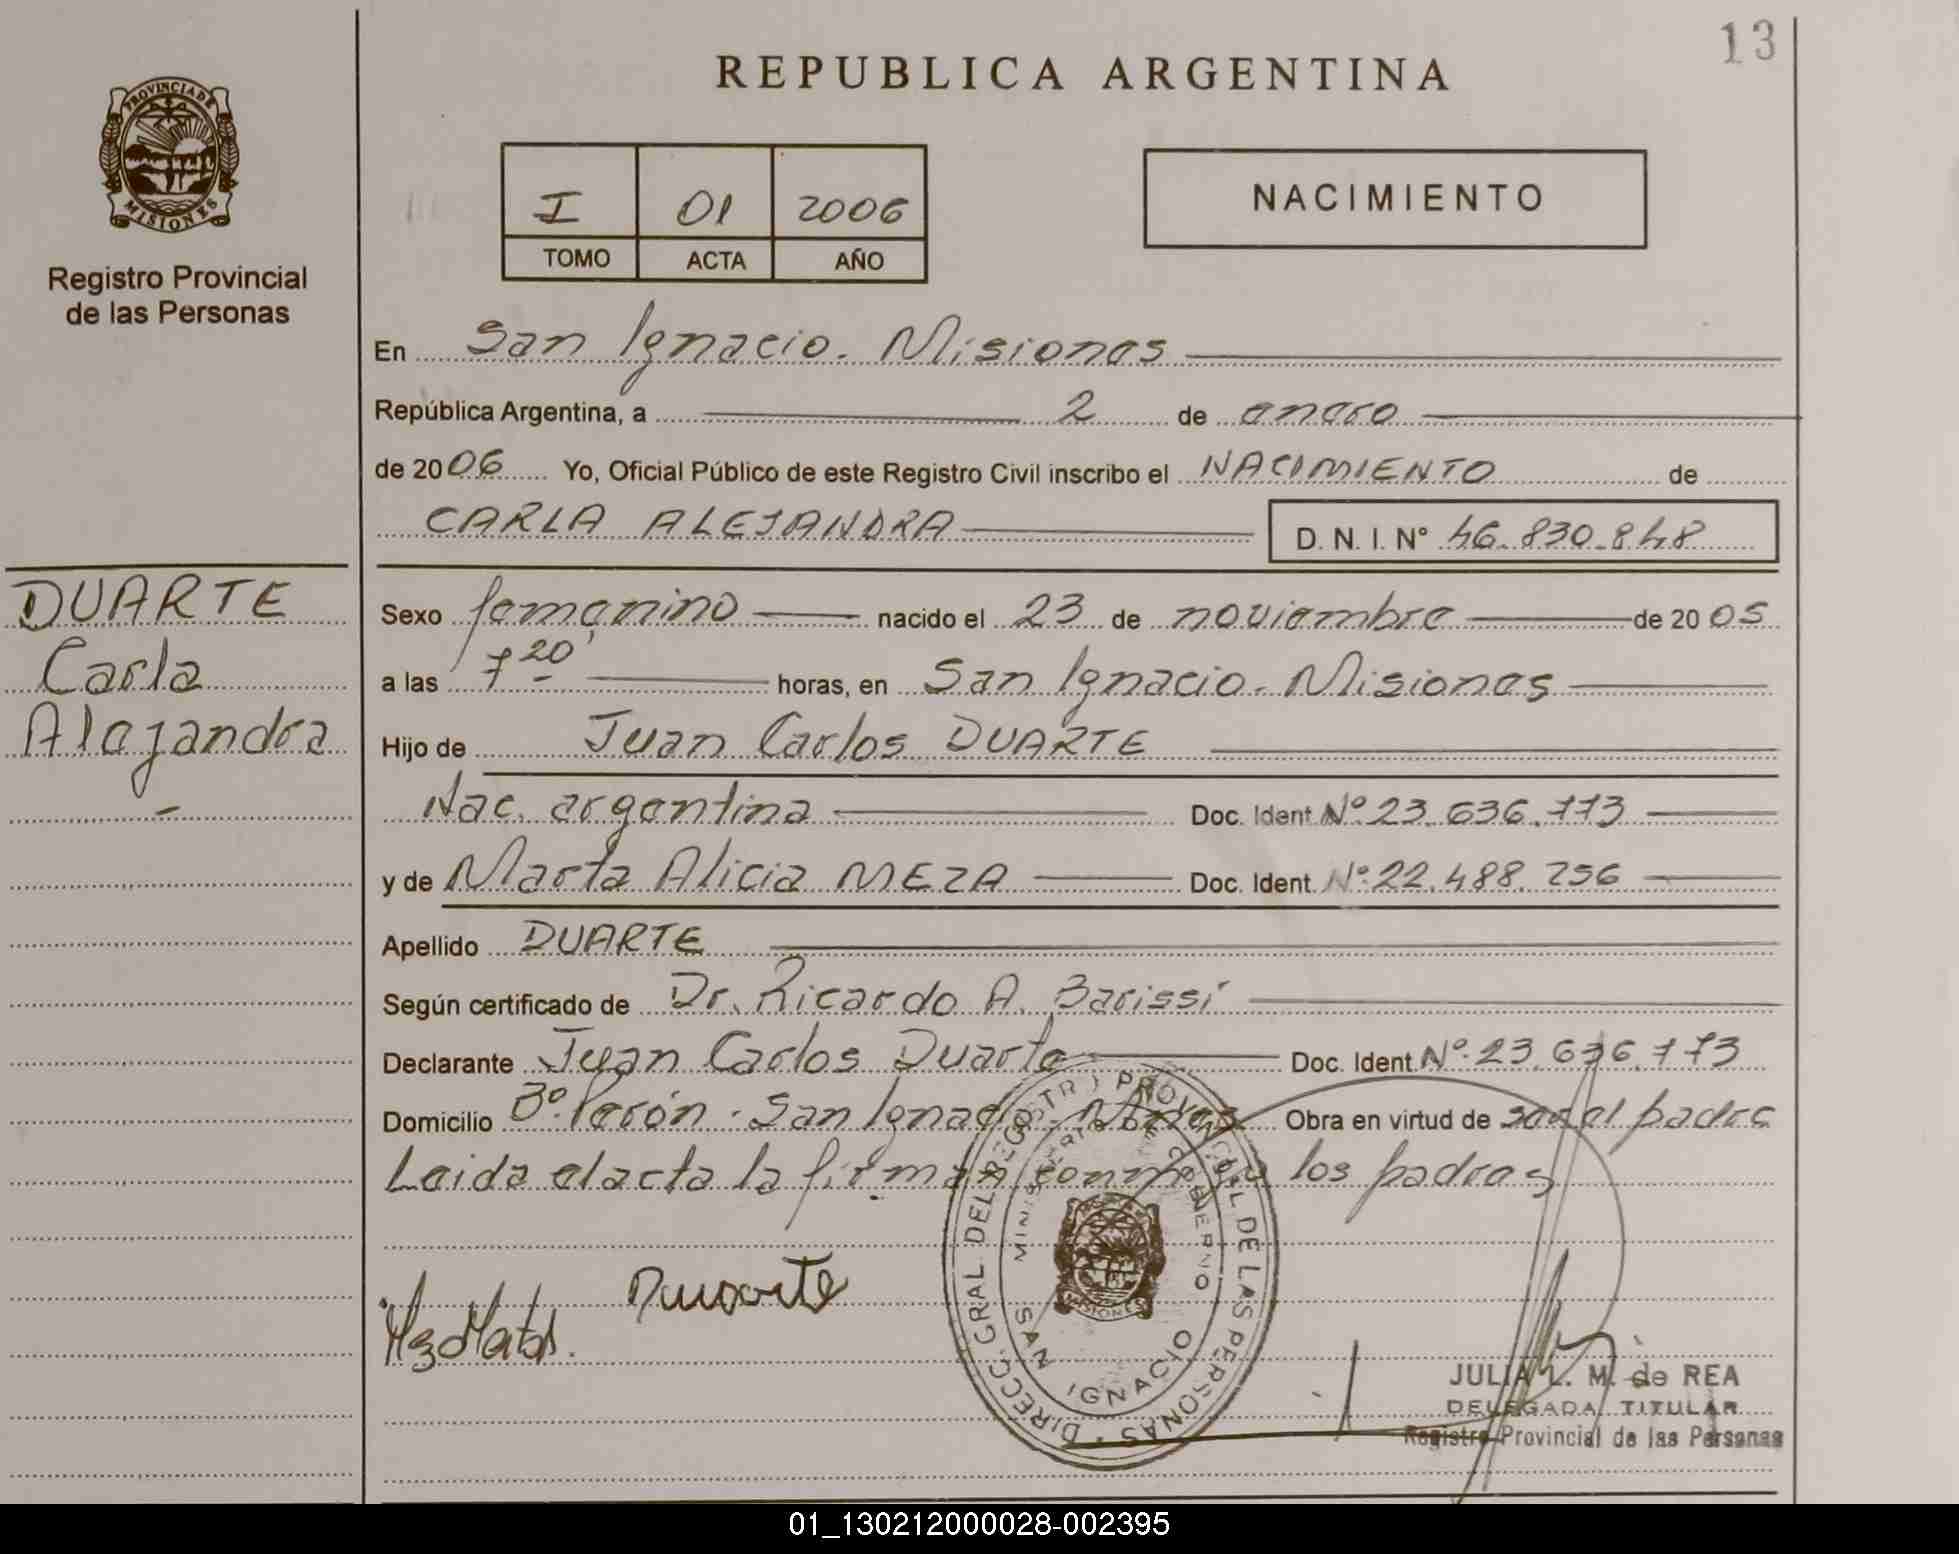 13
REPUBLICA ARGENTINA
PROVINCIA DE MISIONES
Registro Provincial
de las Personas
I 01 2006
TOMO ACTA AÑO
NACIMIENTO
En San Ignacio. Misiones
República Argentina, a 2 de enero
de 2006 Yo, Oficial Público de este Registro Civil inscribo el NACIMIENTO de
CARLA ALEJANDRA D. N. I. Nº 46.830.848
DUARTE
Carla
Alejandra
Sexo femenino nacido el 23 de noviembre de 2005
a las 7 20' horas, en San Ignacio. Misiones
Hijo de Juan Carlos DUARTE
Nac. argentina Doc. Ident Nº 23.636.773
y de Marta Alicia MEZA Doc. Ident. Nº 22.488.256
Apellido DUARTE
Según certificado de Dr. Ricardo A. Barissi
Declarante Juan Carlos Duarte Doc. Ident Nº 23.636.773
Domicilio Bº. Perón. San Ignacio. Obra en virtud de ser el padre
Leida el acta la firman conmigo los padres
Duuarte
DIRECC. GRAL. DEL REGISTRO PROVINCIAL DE LAS PERSONAS
MINISTERIO DE GOBIERNO
SAN IGNACIO
MISIONES
JULIA L. M. de REA
DELEGADA TITULAR
Registro Provincial de las Personas
01_130212000028-002395